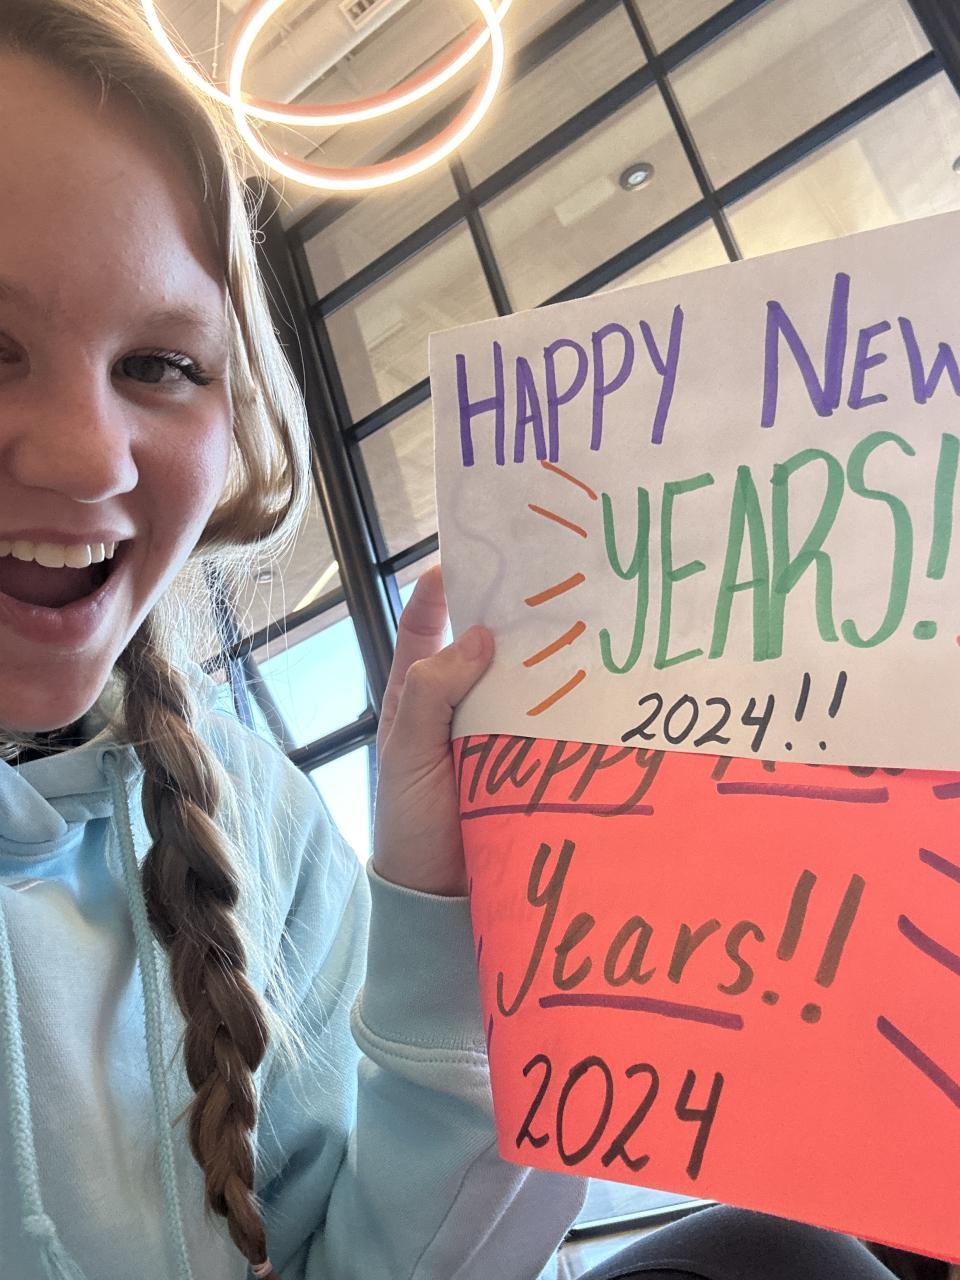 HAPPY NEW
YEARS!
2024!!
Happy
Years!!
2024